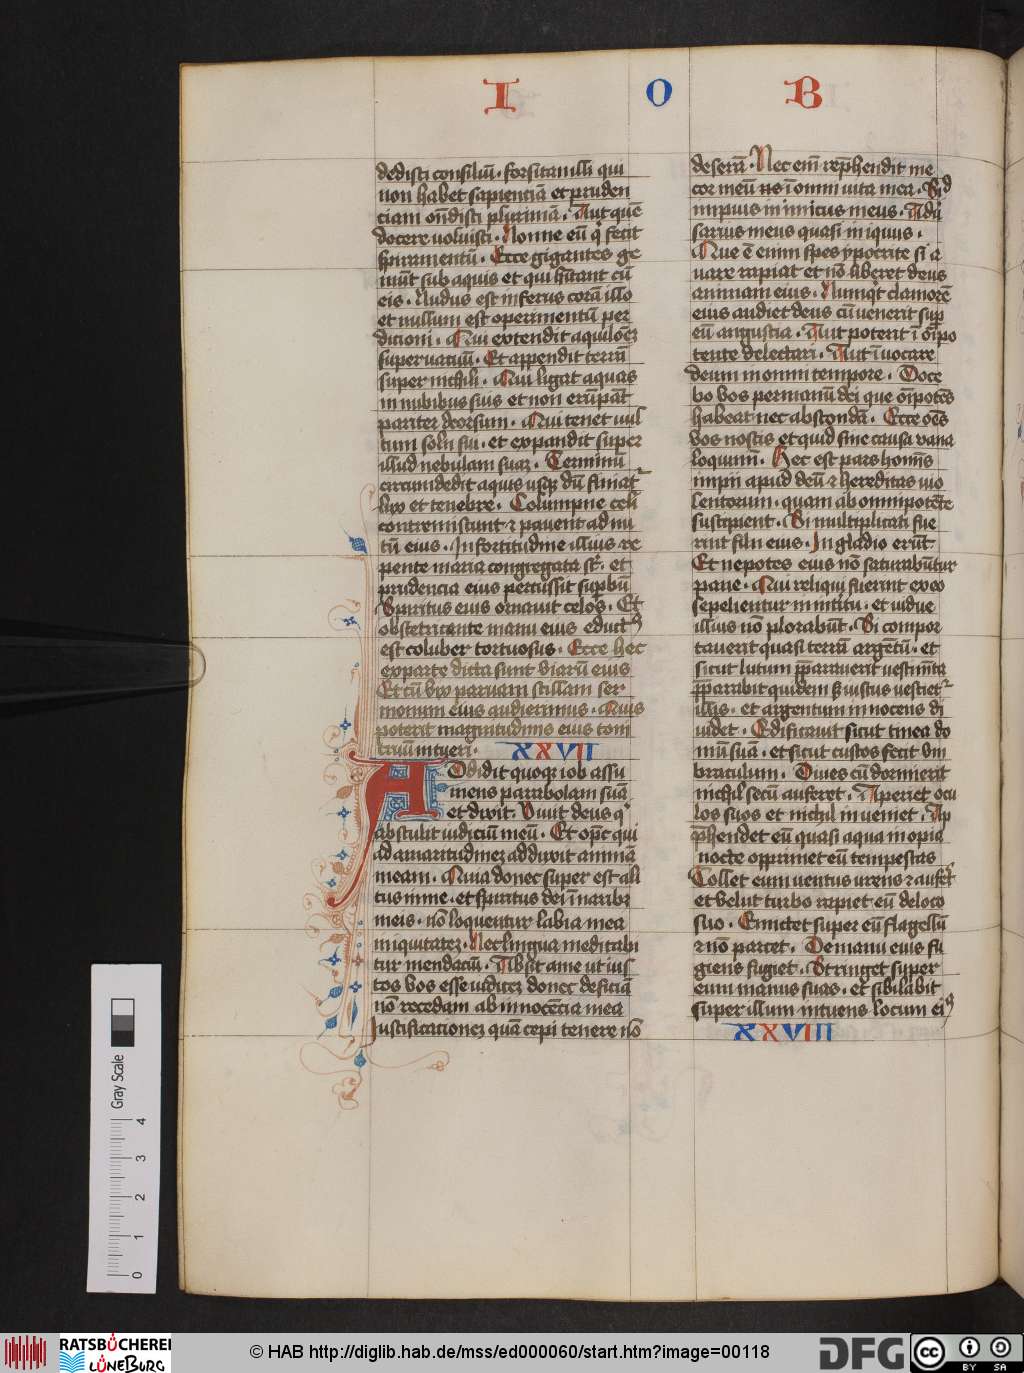 I O B
dedisti consiliū · forsitan illi qui
non habet sapienciā et pruden
ciam on̄disti plurimā · Aut quē
docere voluisti · Nonne eū q̇ fecit
spiramentū · Ecce gigantes ge
mūt sub aquis et qui h̄itant cū
eis · Nudus est infernus corā illo
et nullum est operimentū per
dicioni · Qui extendit aquilonē
super vacuū · Et appendit terrā
super nichili · Qui ligat aquas
in nubibus suis et non erūpāt
pariter deorsum · Qui tenet vul
tum solii sui · et expandit super
illud nebulam suaꝫ · Terminū
circumdedit aquis usqꝫ dū finiat̄
lux et tenebre · Columpne celi
contremiscunt ⁊ pavent ad nu
tū eius · In fortitudine illius re
pente maria congregata st̄ · et
prudencia eius percussit supbū
Spiritus eius ornavit celos · Et
obstetricante manu eius educt⁹
est coluber tortuosus · Ecce hec
ex parte dicta sunt viarū eius
Et cū vix parvam stillam ser
monum eius audierimus · Quis
poterit magnitudinis eius toni
truū intueri · XXVII
Addidit quoqꝫ iob assu
mens parabolam suā
et dixit · Vivit deus q̇
abstulit iudiciū meū · Et op̄t qui
ad amaritudineꝫ adduxit animā
meam · Quia donec super est ali
tus in me · et spiritus dei ī naribꝫ
meis · nō loquentur labia mea
iniquitateꝫ · Nec lingua meditabi
tur mendaciū · Absit a me ut ius
tos vos esse iudiceꝫ donec deficiā
nō recedam ab innocēcia mea
Iustificationeꝫ quā cepi tenere nō
deserā · Nec eni̅ rep̄hendit me
cor meū in ōmni vita mea · Sid
impius inimicus meus · Adv̄
sarius meus quasi iniquus ·
Que ē enim spes ypocrite si a
vare rapiat et nō liberet deus
animam eius · Numqͥt clamorē
eius audiet deus cū venerit sup
eū angustia · Aut poterit ī oīpo
tente delectari · Aut īvocare
deum in omni tempore · Doce
bo vos per manū dei que oīpotēs
habeat nec abscondā · Ecce oēs
vos nostis et quid sine causa vana
loquimī · Hec est pars homīs
impii apud deū ⁊ hereditas vio
lentorum · quam ab omnipotēte
suscipient · Si multiplicati fue
rint filii eius · In gladio erūt ·
Et nepotes eius nō saturabūtur
pane · Qui reliqui fuerint ex eo
sepelientur in intitu · et vidue
illius nō plorabūt · Si compor
taverit quasi terrā argētū · et
sicut lutum p̄paraverit vestimēta
p̄parabit quidem s̄ iustus vestiet̄
illis · et argentum innocens di
videt · Edificavit sicut tinea do
mū suā · et sicut custos fecit um
braculum · Dives cū dormierit
nichil secū auferet · Aperiet ocu
los suos et nichil inveniet · Ap
p̄hendet eū quasi aqua inopia
nocte opprimet eū tempestas
Tollet eum ventus urens ⁊ aufer̄t
et velut turbo rapiet eū de loco
suo · Emictet super eū flagellū
⁊ nō parcet · De manu eius fu
giens fugiet · Stringet super
eum manus suas · et sibilabit
super illum intuens locum ei⁹
XXVIII
Gray Scale
0 1 2 3 4
RATSBÜCHEREI
LÜNEBURG
© HAB http://diglib.hab.de/mss/ed000060/start.htm?image=00118
DFG
cc BY SA